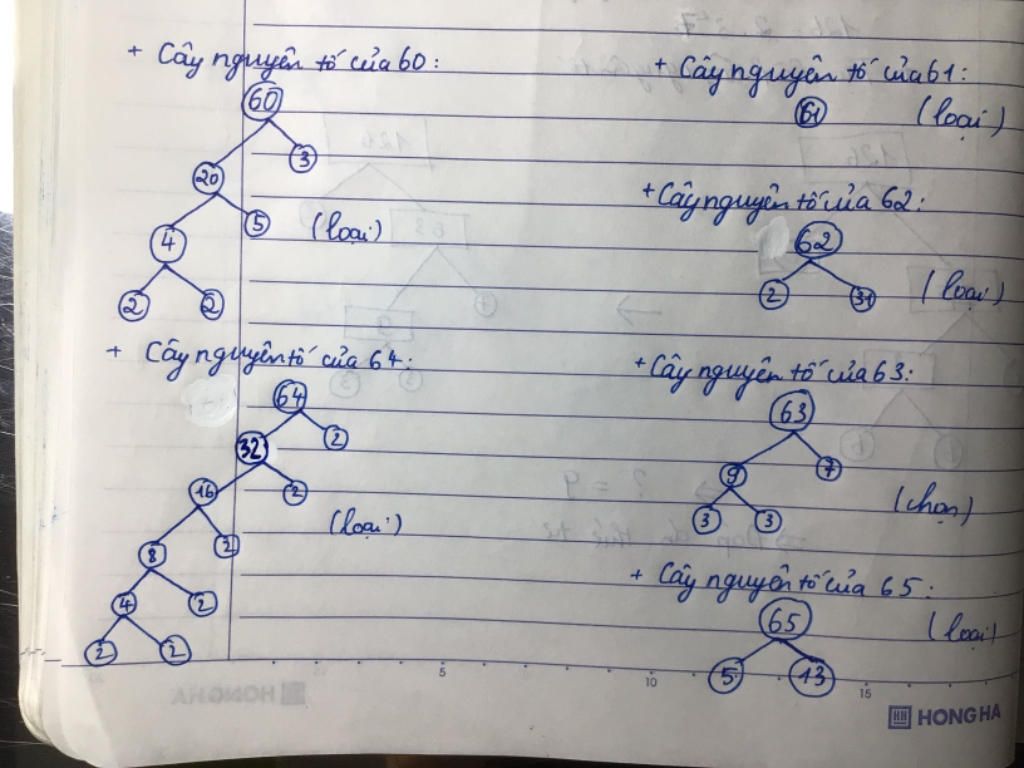 + Cây nguyên tố của 60:
60
3
20
5
4
(loại)
2 2
+ Cây nguyên tố của 61:
61 (loại)
+ Cây nguyên tố của 62:
62
2 31 (loại)
+ Cây nguyên tố của 64:
64
32 2
16 2
(loại)
8 2
4 2
2 2
+ Cây nguyên tố của 63:
63
9 7
(chọn)
3 3
+ Cây nguyên tố của 65:
65 (loại)
5 13
5 10 15
HONG HA